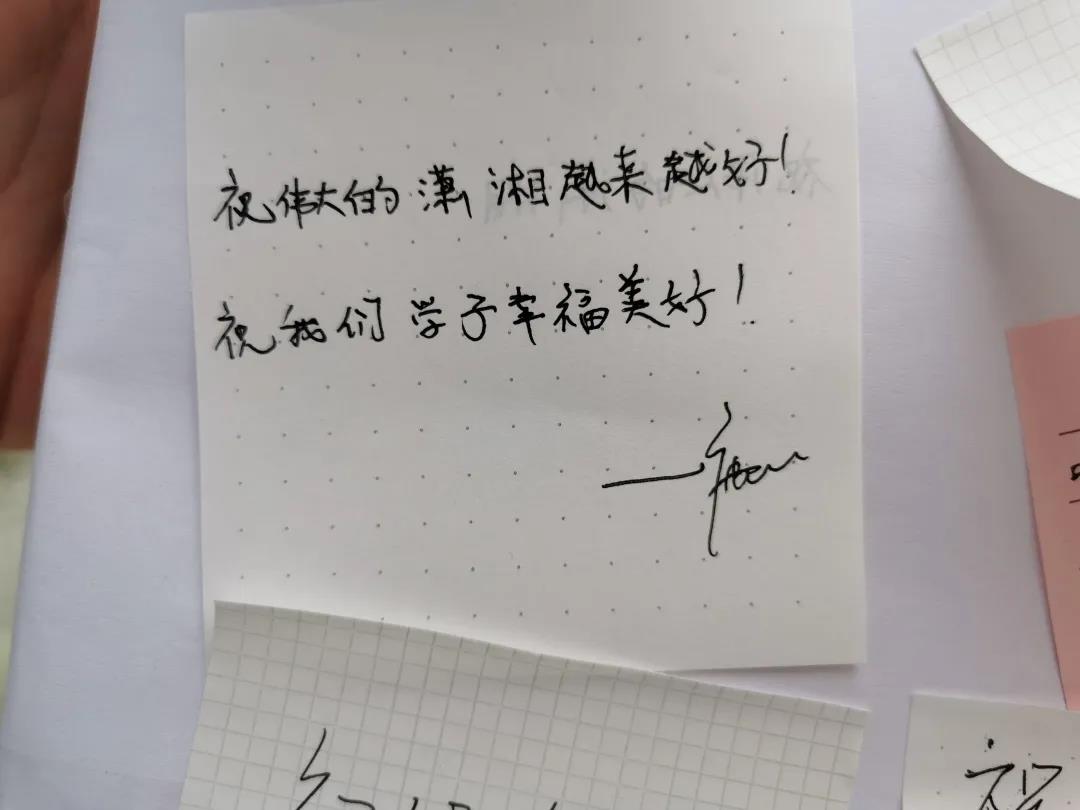 祝伟大的潇湘越来越好!
祝我们学子幸福美好!
祝